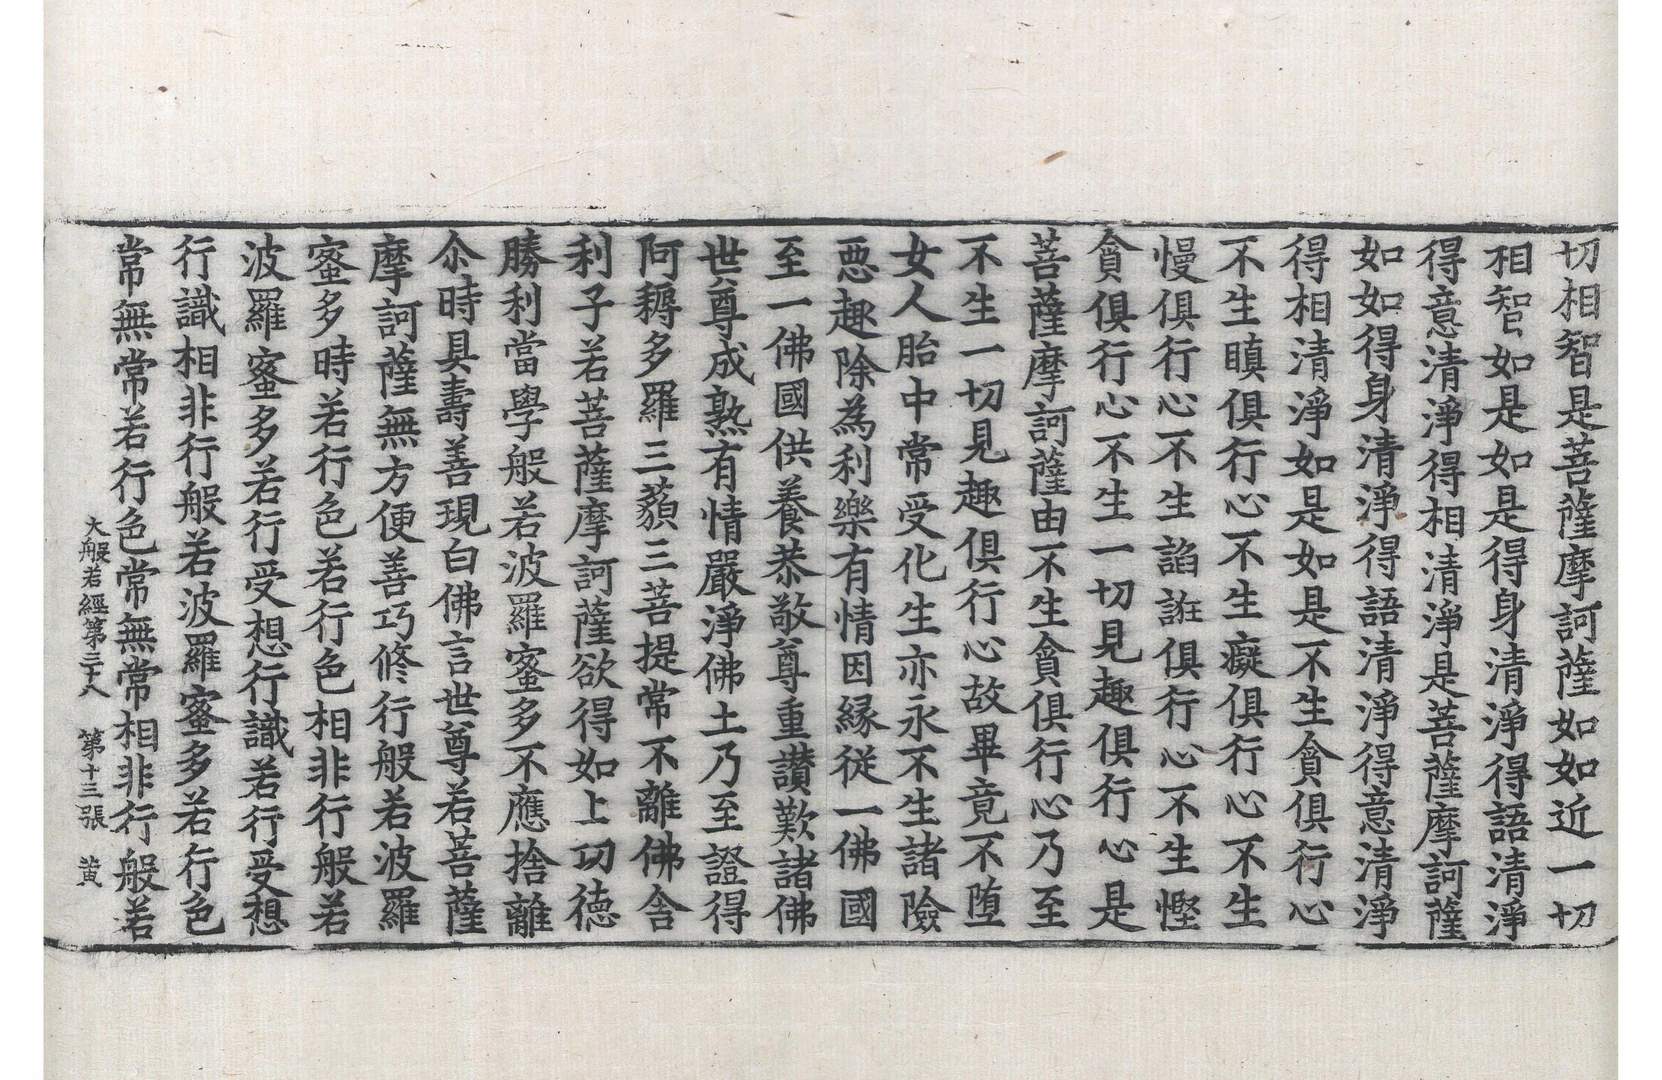 切相智是菩薩摩訶薩如如近一切
相智如是如是得身清淨得語清淨
得意清淨得相清淨是菩薩摩訶薩
如如得身清淨得語清淨得意清淨
得相清淨如是如是不生貪俱行心
不生瞋俱行心不生癡俱行心不生
慢俱行心不生諂誑俱行心不生慳
貪俱行心不生一切見趣俱行心是
菩薩摩訶薩由不生貪俱行心乃至
不生一切見趣俱行心故畢竟不墮
女人胎中常受化生亦永不生諸險
惡趣除為利樂有情因緣從一佛國
至一佛國供養恭敬尊重讚歎諸佛
世尊成熟有情嚴淨佛土乃至證得
阿耨多羅三藐三菩提常不離佛舍
利子若菩薩摩訶薩欲得如上功德
勝利當學般若波羅蜜多不應捨離
尒時具壽善現白佛言世尊若菩薩
摩訶薩無方便善巧修行般若波羅
蜜多時若行色若行色相非行般若
波羅蜜多若行受想行識若行受想
行識相非行般若波羅蜜多若行色
常無常若行色常無常相非行般若
大般若經第三十八　第十三張　黄